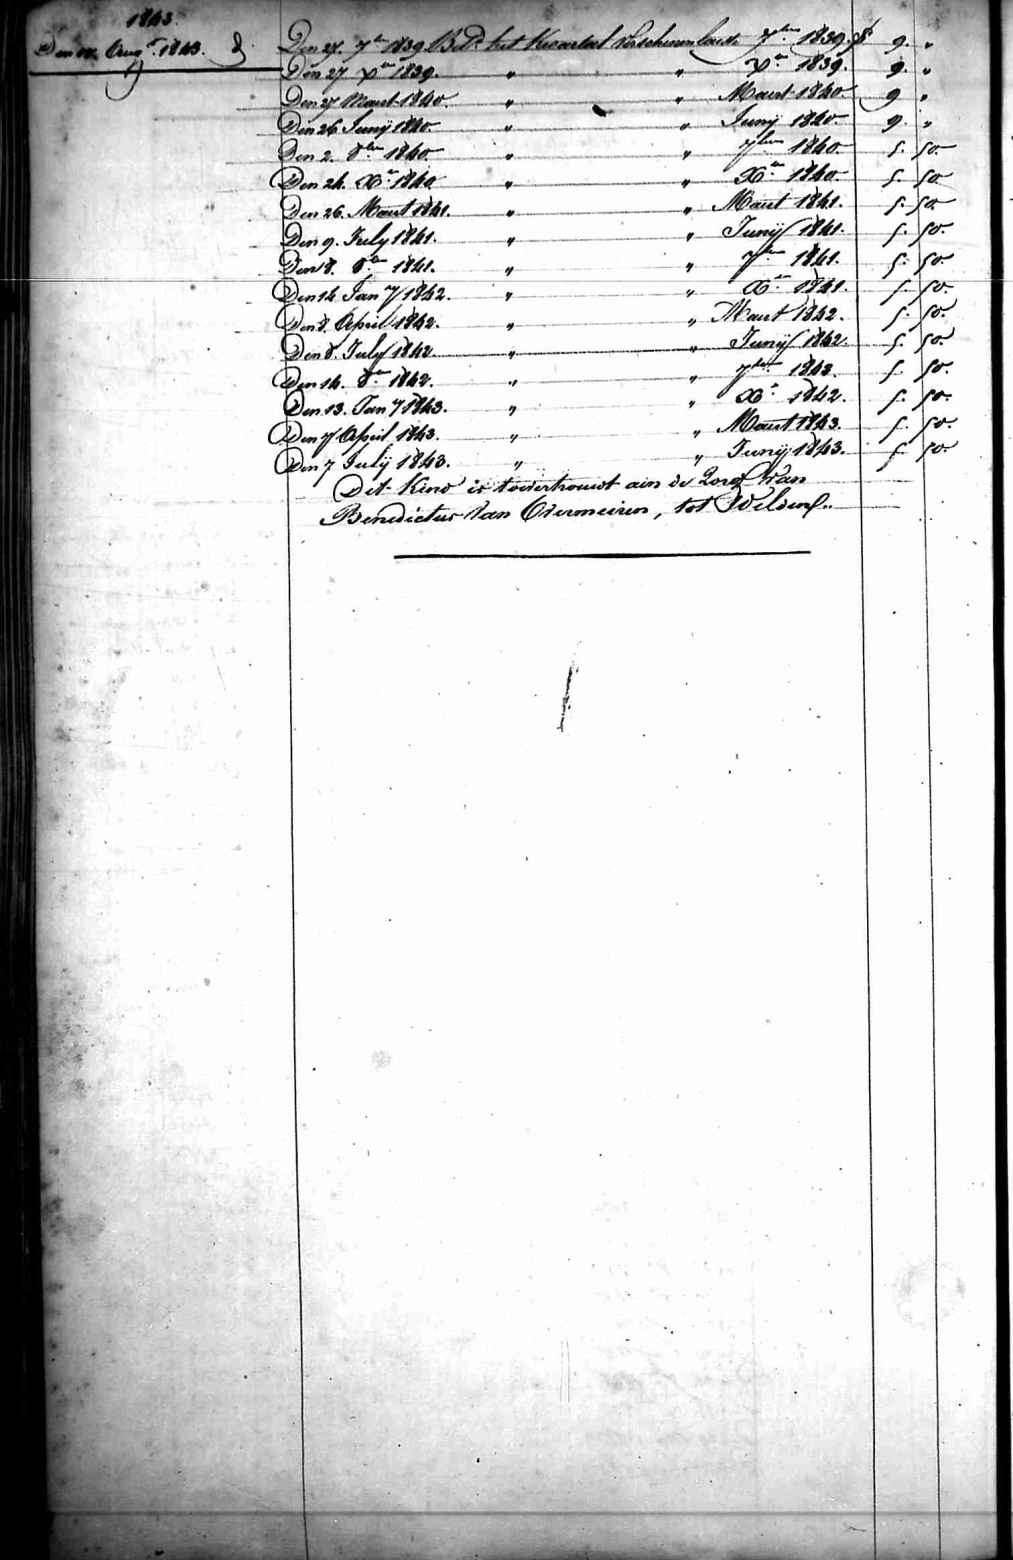 1843.
Den Aug.t 1843. 8.
Den 27. 7ber 1839 Bet.d het Kwartaal verschenen laast. 7ber 1839. f 9. "
Den 27 Xer 1839. " " Xer 1839. 9. "
Den 27 Maart 1840. " " Maart 1840. 9 "
Den 26 Junij 1840. " " Junij 1840. 9. "
Den 2. 8ber 1840. " " 7ber 1840. 5. 50.
Den 24. Xer 1840 " " Xer 1840. 5. 50.
Den 26. Maart 1841. " " Maart 1841. 5. 50.
Den 9. July 1841. " " Junij 1841. 5. 50.
Den 8. 8ber 1841. " " 7ber 1841. 5. 50.
Den 14. Jan y 1842. " " Xer 1841. 5. 50.
Den 8. April 1842. " " Maart 1842. 5. 50.
Den 8. July 1842. " " Junij 1842. 5. 50.
Den 14. 8ber 1842. " " 7ber 1842. 5. 50.
Den 13. Jan y 1843. " " Xer 1842. 5. 50.
Den 7 April 1843. " " Maart 1843. 5. 50.
Den 7 Julij 1843. " " Junij 1843. 5. 50.
Dit Kind is toevertrouwt aan de Zorg van
Benedictus Van Overmeiren, tot Welden.